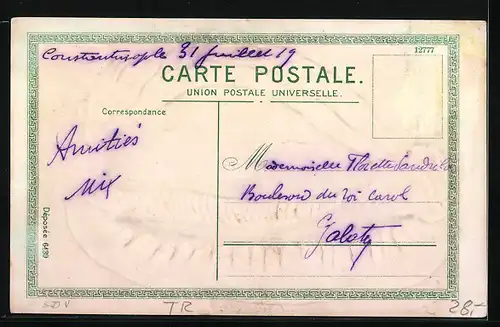 Constantinople 31 Juillet 19
12777
CARTE POSTALE.
UNION POSTALE UNIVERSELLE.
Correspondance
Amitiés
Mademoiselle Florette
Boulevard du roi Carol
Galatz
Déposée 6439
TR
28,-